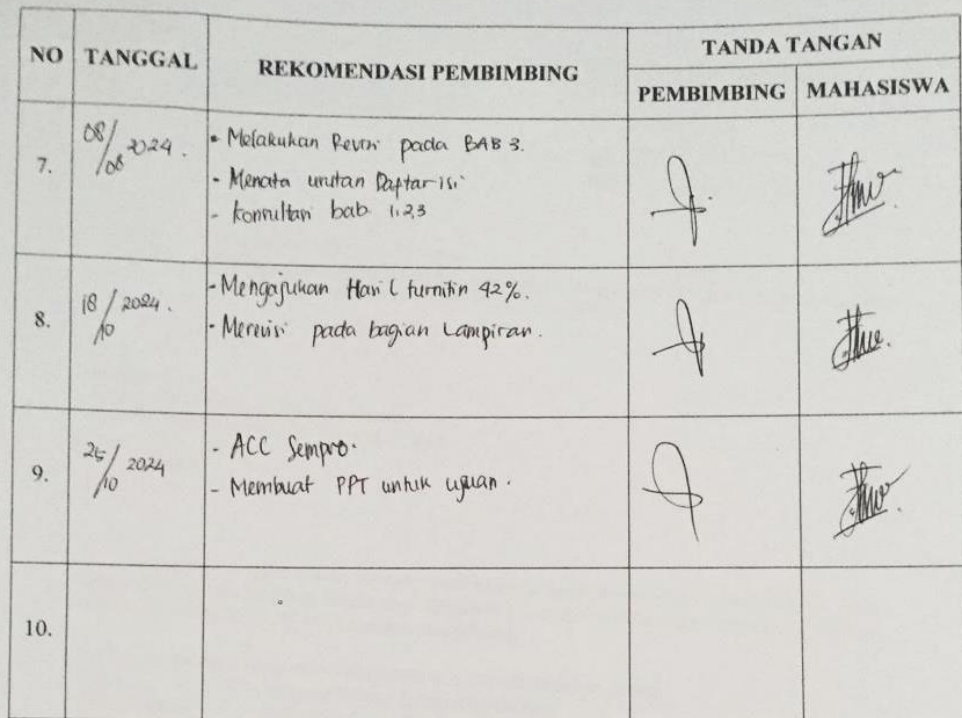 NO TANGGAL REKOMENDASI PEMBIMBING TANDA TANGAN
PEMBIMBING MAHASISWA
7. 08/08 2024. - Melakukan Revisi pada BAB 3.
- Menata urutan Daftar isi
- Konsultasi bab 1,2,3
8. 18/10 2024. - Mengajukan Hasil turnitin 42%.
- Merevisi pada bagian Lampiran.
9. 25/10 2024 - ACC Sempro.
- Membuat PPT untuk ujian.
10.